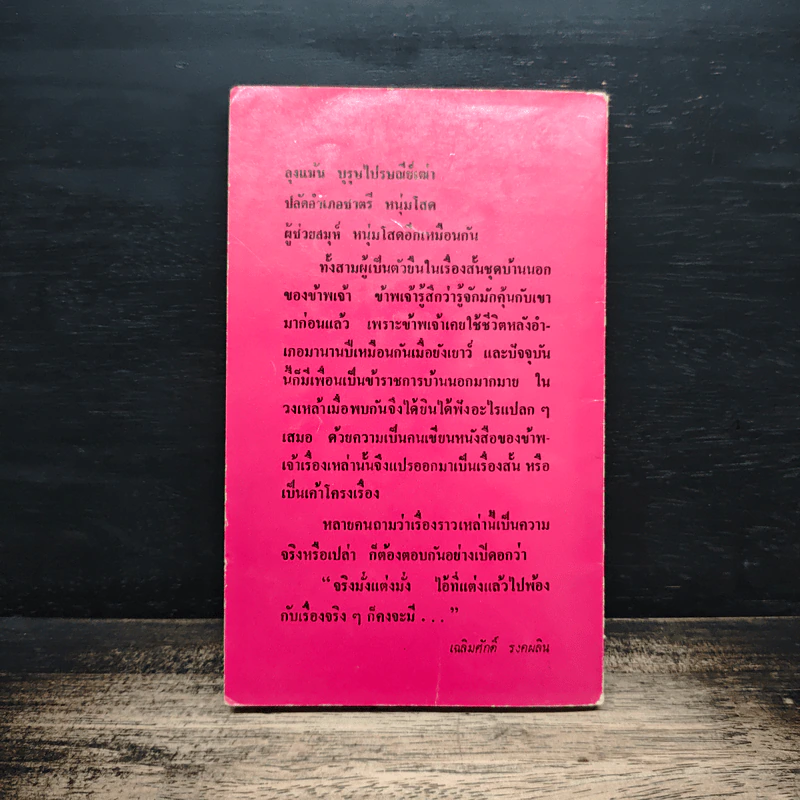 ลุงแม้น บุรุษไปรษณีย์เฒ่า
ปลัดอำเภอชาตรี หนุ่มโสด
ผู้ช่วยสมุห์ หนุ่มโสดอีกเหมือนกัน
ทั้งสามผู้เป็นตัวยืนในเรื่องสั้นชุดบ้านนอก
ของข้าพเจ้า ข้าพเจ้ารู้สึกว่ารู้จักมักคุ้นกับเขา
มาก่อนแล้ว เพราะข้าพเจ้าเคยใช้ชีวิตหลังอำ-
เภอมานานปีเหมือนกันเมื่อยังเยาว์ และปัจจุบัน
นี้ก็มีเพื่อนเป็นข้าราชการบ้านนอกมากมาย ใน
วงเหล้าเมื่อพบกันจึงได้ยินได้ฟังอะไรแปลก ๆ
เสมอ ด้วยความเป็นคนเขียนหนังสือของข้าพ-
เจ้าเรื่องเหล่านั้นจึงแปรออกมาเป็นเรื่องสั้น หรือ
เป็นเค้าโครงเรื่อง
หลายคนถามว่าเรื่องราวเหล่านี้เป็นความ
จริงหรือเปล่า ก็ต้องตอบกันอย่างเปิดอกว่า
“จริงมั่งแต่งมั่ง ไอ้ที่แต่งแล้วไปพ้อง
กับเรื่องจริง ๆ ก็คงจะมี . . .”
เฉลิมศักดิ์ รงคผลิน